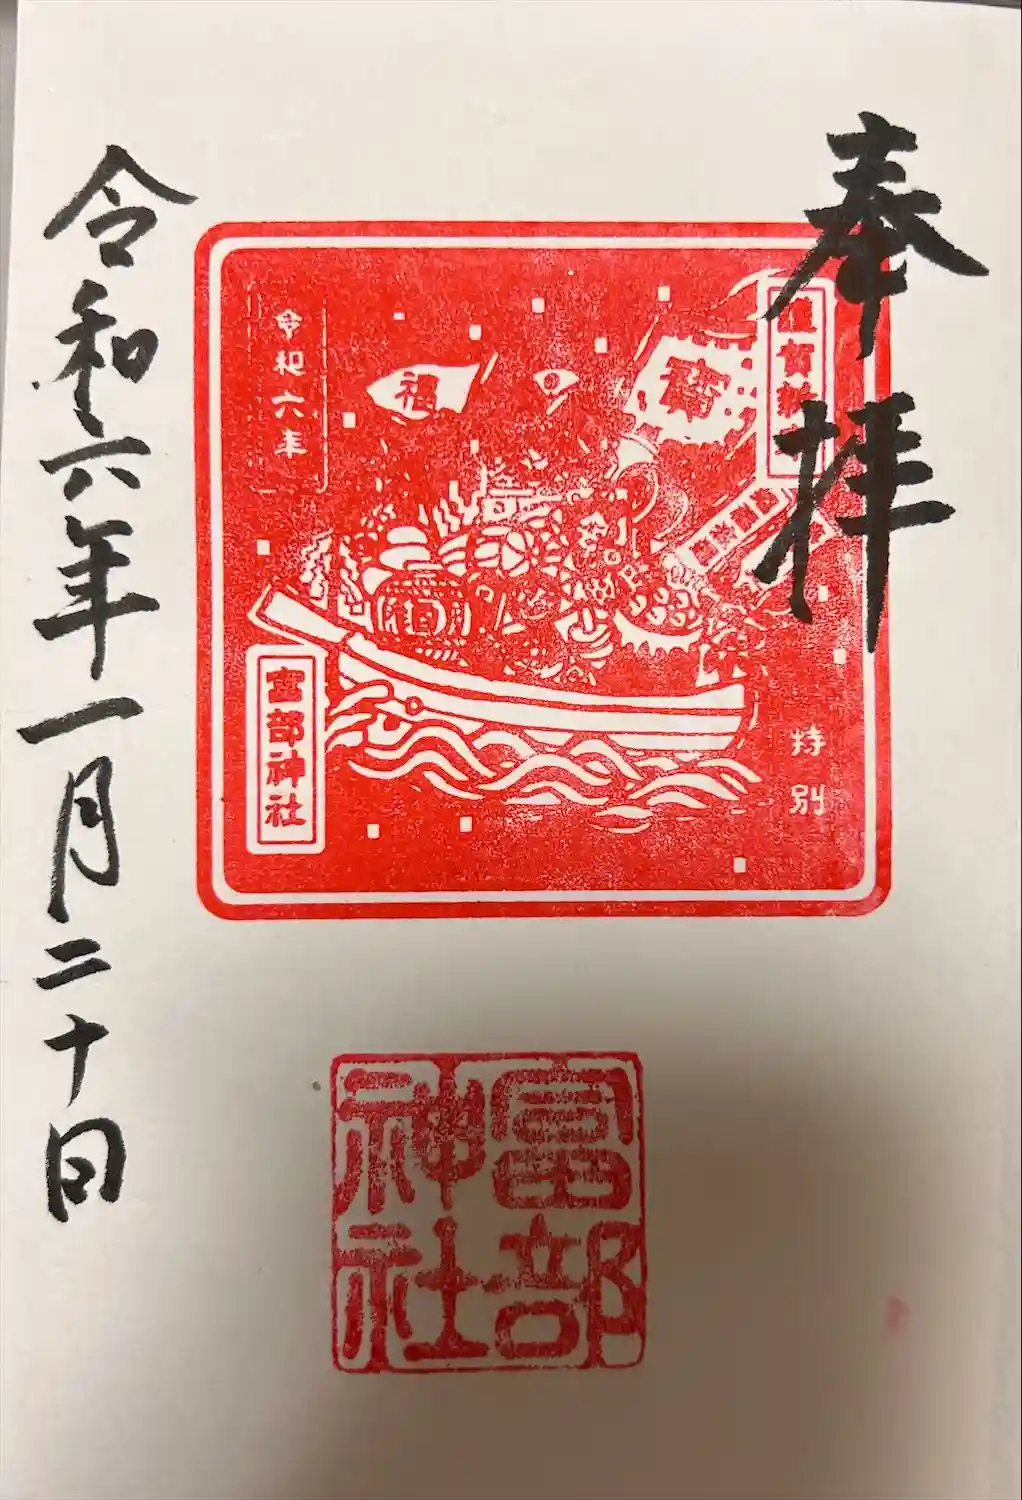 奉拝
令和六年
福
特別
富部神社
富部神社
令和六年一月二十日